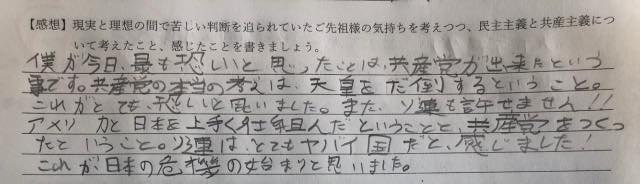 【感想】現実と理想の間で苦しい判断を迫られていたご先祖様の気持ちを考えつつ、民主主義と共産主義につ
いて考えたこと、感じたことを書きましょう。
僕が今日、最も恐しいと思ったことは、共産党が出来たという
事です。共産党の本当の考えは、天皇をだ倒するということ。
これがとても、恐しいと思いました。また、ソ連も許せません!!
アメリカと日本を上手く仕組んだということと、共産党をつくっ
たということ。ソ連は、とてもヤバイ国だと、感じました!
これが日本の危機の始まりと思いました。